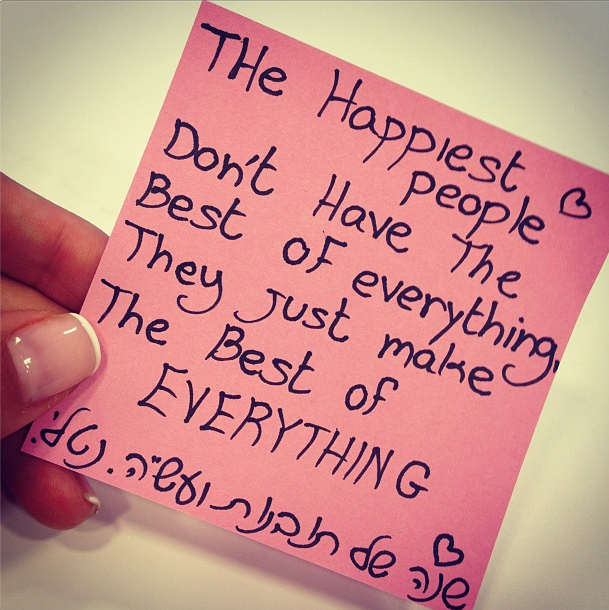 THe Happiest
people
Don't Have The
Best of everything.
They just make
The Best of
EVERYTHING
שנה של תובנות ועשייה. נטלי.